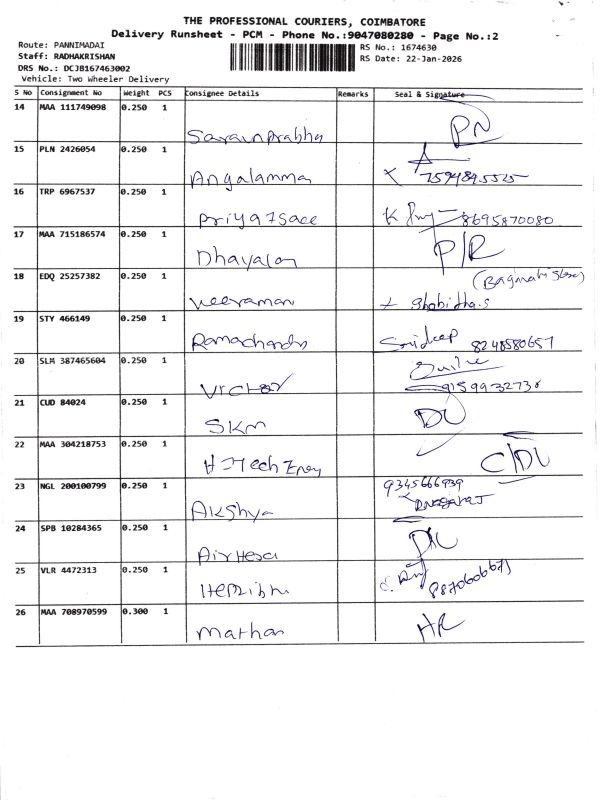 THE PROFESSIONAL COURIERS, COIMBATORE
Delivery Runsheet - PCM - Phone No.:9047080280 - Page No.:2
Route: PANNIMADAI
Staff: RADHAKRISHAN
DRS No.: DCJB167463002
Vehicle: Two Wheeler Delivery
RS No.: 1674630
RS Date: 22-Jan-2026
S No Consignment No Weight PCS Consignee Details Remarks Seal & Signature
14 MAA 111749098 0.250 1
PN
15 PLN 2426054 0.250 1 Angalamma
16 TRP 6967537 0.250 1 8695870080
17 MAA 715186574 0.250 1 Dhayalan P/R
18 EDQ 25257382 0.250 1 Veeraman
19 STY 466149 0.250 1 Ramachandra 8248580657
20 SLM 387465604 0.250 1 9159932738
21 CUD 84024 0.250 1 SKM
22 MAA 304218753 0.250 1
23 NGL 200100799 0.250 1 Akshya 9345666939
24 SPB 10284365 0.250 1
25 VLR 4472313 0.250 1
26 MAA 708970599 0.300 1 Mathan